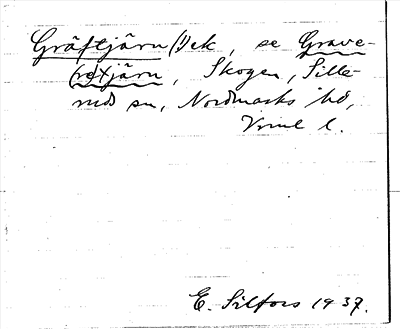 Gräftjärn (!) ek, se Grave-
(rds)tjärn, Skogen, Sille-
ruds sn, Nordmarks hd,
Vrml l.
E. Silfors 1937.